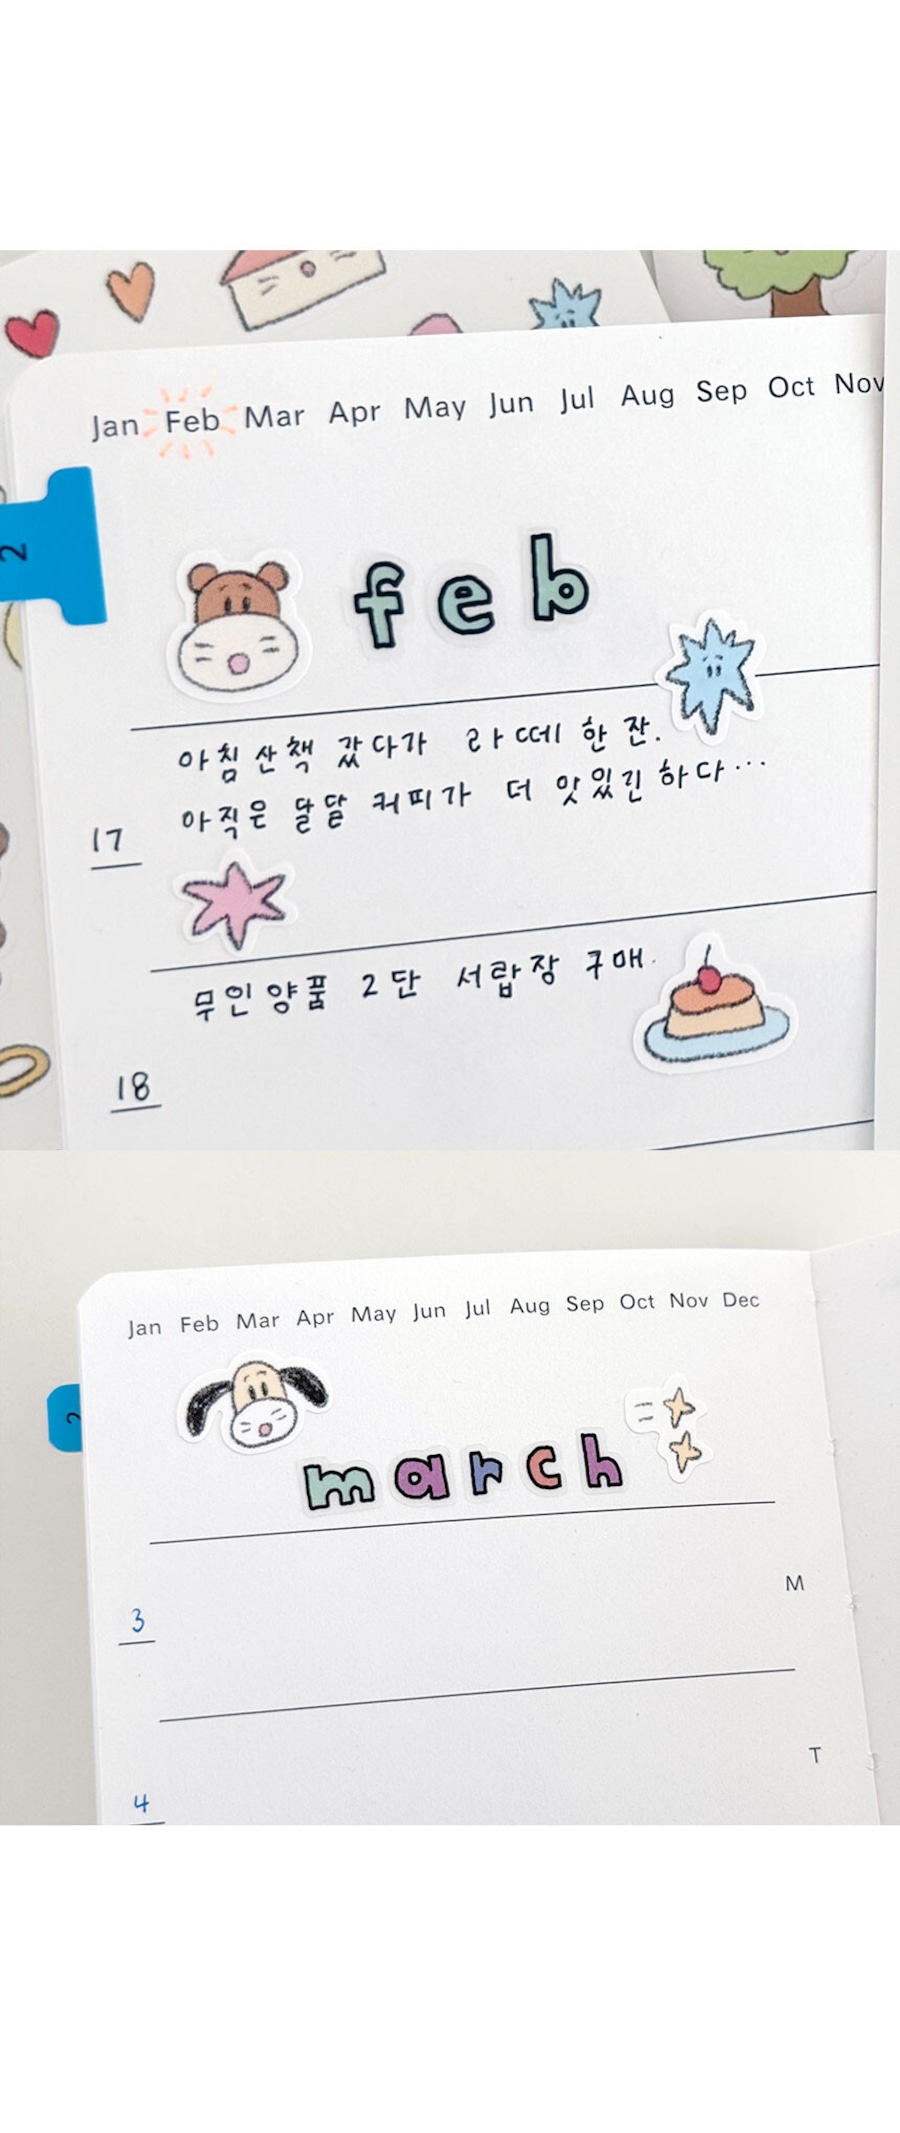 Jan Feb Mar Apr May Jun Jul Aug Sep Oct Nov
2
feb
아침 산책 갔다가 라떼 한 잔.
아직은 달달 커피가 더 맛있긴 하다...
17
무인양품 2단 서랍장 구매.
18
Jan Feb Mar Apr May Jun Jul Aug Sep Oct Nov Dec
2
march
M
3
T
4